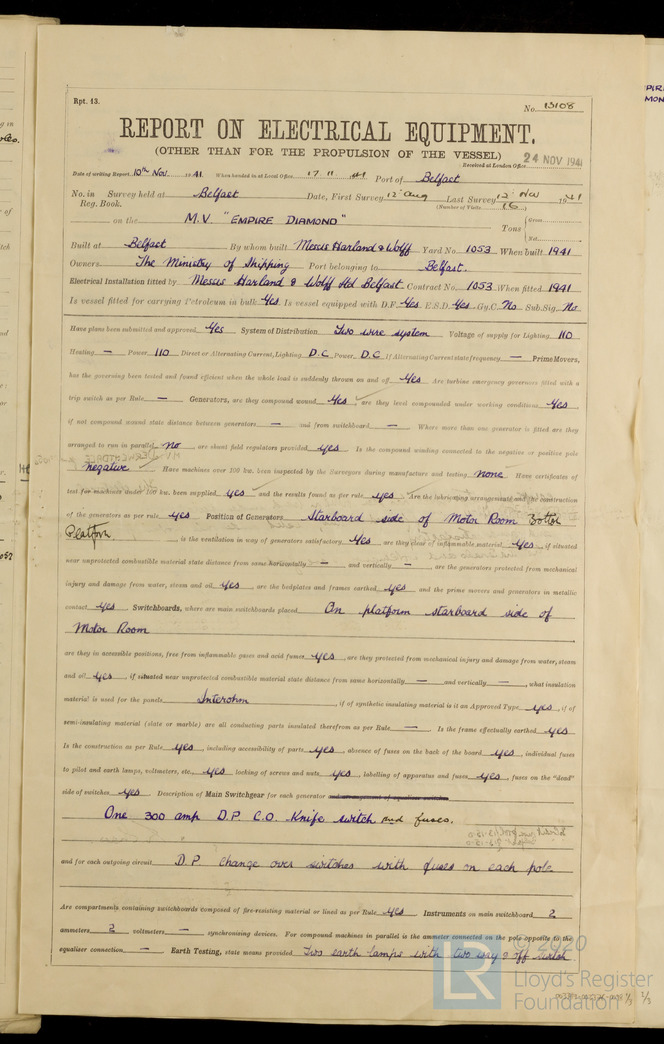 Rpt. 13.
No. 13108
REPORT ON ELECTRICAL EQUIPMENT.
(OTHER THAN FOR THE PROPULSION OF THE VESSEL)
Received at London Office 24 NOV 1941
Date of writing Report 10th Nov. 1941. When handed in at Local Office 17. 11. 41 Port of Belfast
No. in Survey held at Belfast Date, First Survey 12th Aug Last Survey 12th Nov 1941
Reg. Book. (Number of Visits 16)
on the M.V. "EMPIRE DIAMOND" Tons { Gross
Net
Built at Belfast By whom built Messrs Harland & Wolff Yard No. 1053 When built 1941
Owners The Ministry of Shipping Port belonging to Belfast.
Electrical Installation fitted by Messrs Harland & Wolff Ltd Belfast Contract No. 1053 When fitted 1941
Is vessel fitted for carrying Petroleum in bulk Yes Is vessel equipped with D.F. Yes E.S.D. Yes Gy.C. No Sub.Sig. No
Have plans been submitted and approved Yes System of Distribution Two wire system Voltage of supply for Lighting 110
Heating — Power 110 Direct or Alternating Current, Lighting D.C Power D.C If Alternating Current state frequency — Prime Movers,
has the governing been tested and found efficient when the whole load is suddenly thrown on and off Yes Are turbine emergency governors fitted with a
trip switch as per Rule — Generators, are they compound wound Yes, are they level compounded under working conditions Yes,
if not compound wound state distance between generators — and from switchboard — Where more than one generator is fitted are they
arranged to run in parallel no, are shunt field regulators provided yes Is the compound winding connected to the negative or positive pole
negative Have machines over 100 kw. been inspected by the Surveyors during manufacture and testing none Have certificates of
test for machines under 100 kw. been supplied yes and the results found as per rule yes Are the lubricating arrangements and the construction
of the generators as per rule yes Position of Generators Starboard side of Motor Room Bottom
Platform. is the ventilation in way of generators satisfactory Yes are they clear of inflammable material yes, if situated
near unprotected combustible material state distance from same horizontally — and vertically —, are the generators protected from mechanical
injury and damage from water, steam and oil yes, are the bedplates and frames earthed yes and the prime movers and generators in metallic
contact yes Switchboards, where are main switchboards placed On platform starboard side of
Motor Room
are they in accessible positions, free from inflammable gases and acid fumes yes, are they protected from mechanical injury and damage from water, steam
and oil yes, if situated near unprotected combustible material state distance from same horizontally — and vertically —, what insulation
material is used for the panels Interohm, if of synthetic insulating material is it an Approved Type yes, if of
semi-insulating material (slate or marble) are all conducting parts insulated therefrom as per Rule — Is the frame effectually earthed yes
Is the construction as per Rule yes, including accessibility of parts yes, absence of fuses on the back of the board yes, individual fuses
to pilot and earth lamps, voltmeters, etc. yes locking of screws and nuts yes, labelling of apparatus and fuses yes, fuses on the "dead"
side of switches yes Description of Main Switchgear for each generator and arrangement of equaliser switches
One 300 amp D.P. C.O. Knife switch and fuses.
and for each outgoing circuit D.P. change over switches with fuses on each pole
Are compartments containing switchboards composed of fire-resisting material or lined as per Rule Yes Instruments on main switchboard 2
ammeters 2 voltmeters — synchronising devices. For compound machines in parallel is the ammeter connected on the pole opposite to the
equaliser connection — Earth Testing, state means provided Two earth lamps with two way & off switch
© 2020
LR Lloyd's Register
Foundation
1/3